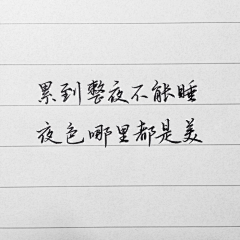 累到整夜不能睡
夜色哪里都是美